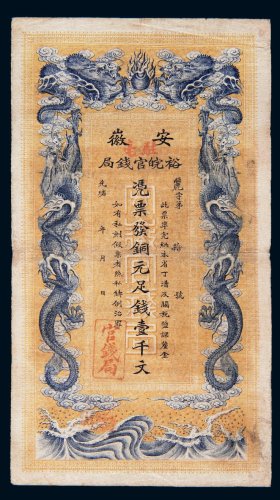 安徽
裕皖官錢局
麗字第 拾 號
此票准完納本省丁漕及關稅鹽課釐金
憑票發銅元足錢壹千文
如有私刻假票者照私鑄例治罪
光緒 年 月 日
官錢局